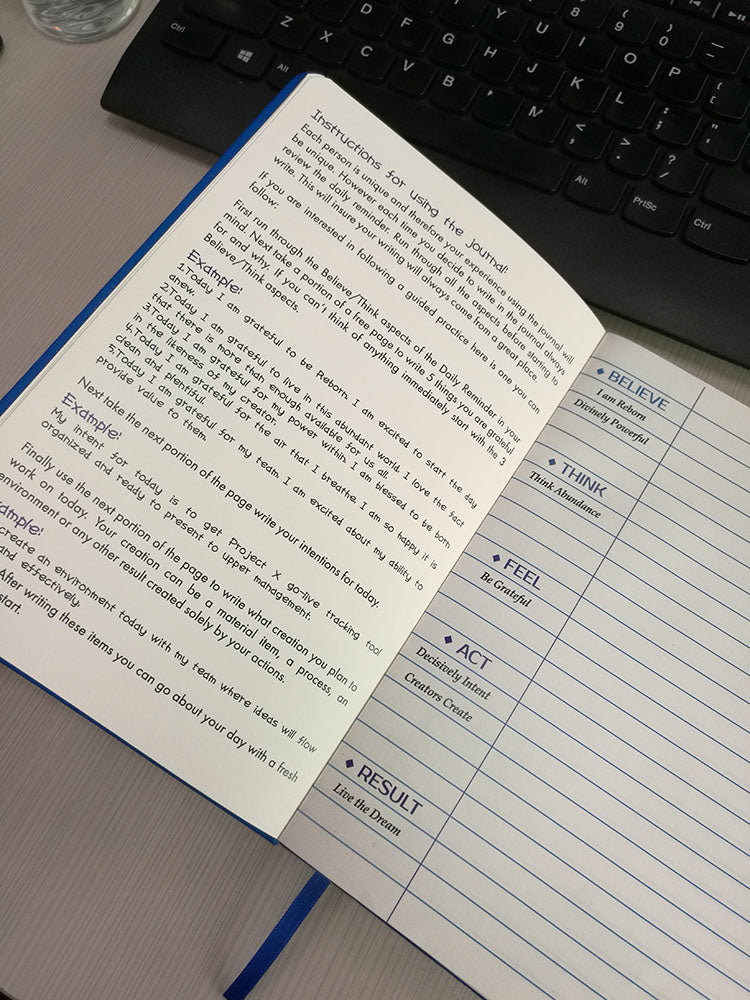 Instructions for using the journal:
Each person is unique and therefore your experience using the journal will
be unique. However each time you decide to write in the journal always
review the daily reminder. Run through all the aspects before starting to
write. This will insure your writing will always come from a great place.
If you are interested in following a guided practice here is one you can
follow:
First run through the Believe/Think aspects of the Daily Reminder in your
mind. Next take a portion of a free page to write 5 things you are grateful
for and why. If you can't think of anything immediately start with the 3
Believe/Think aspects.
Example:
1.Today I am grateful to be Reborn. I am excited to start the day
anew.
2.Today I am grateful to live in this abundant world. I love the fact
that there is more than enough available for us all.
3.Today I am grateful for my power within. I am blessed to be both
in the likeness of my creator.
4.Today I am grateful for the air that I breathe. I am so happy it is
clean and plentiful.
5.Today I am grateful for my team. I am excited about my ability to
provide value to them.
Next take the next portion of the page write your intentions for today.
Example:
My intent for today is to get Project X go-live tracking tool
organized and ready to present to upper management.
Finally use the next portion of the page to write what creation you plan to
work on today. Your creation can be a material item, a process, an
environment or any other result created solely by your actions.
ample:
create an environment today with my team where ideas will flow
and effectively.
After writing these items you can go about your day with a fresh
start.
BELIEVE
I am Reborn
Divinely Powerful
THINK
Think Abundance
FEEL
Be Grateful
ACT
Decisively Intent
Creators Create
RESULT
Live the Dream
Ctrl
Alt
Z
X
C
V
B
N
M
D
F
G
H
J
K
L
T
Y
U
I
O
P
8
9
0
Alt
PrtSc
Ctrl